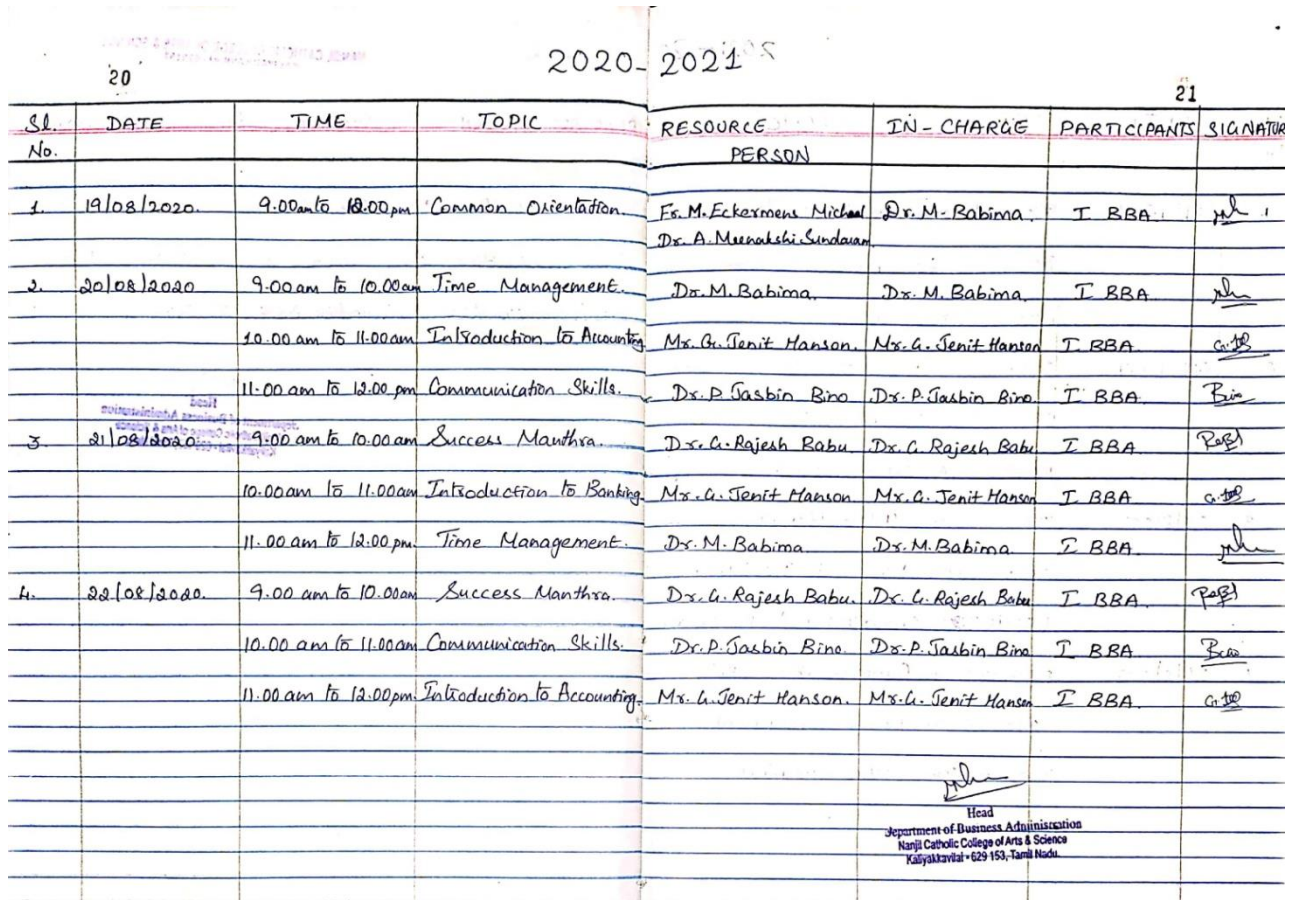 2020-2021
20
21
Sl. DATE TIME TOPIC RESOURCE IN-CHARGE PARTICIPANTS SIGNATUR
No. PERSON
1. 19/08/2020. 9.00am to 12.00 pm Common Orientation. Fr. M. Eckermens Michael Dr. M. Babima. I BBA
Dr. A. Meenakshi Sundaram
2. 20/08/2020 9.00 am to 10.00am Time Management. Dr. M. Babima. Dr. M. Babima. I BBA
10.00 am to 11.00am Introduction to Accounting Mr. G. Jenit Hanson. Mr. G. Jenit Hanson I BBA
11.00 am to 12.00 pm Communication Skills. Dr. P. Jasbin Bino Dr. P. Jasbin Bino. I BBA Bino
3. 21/08/2020. 9.00 am to 10.00 am Success Manthra. Dr. G. Rajesh Babu Dr. G. Rajesh Babu I BBA
10.00am to 11.00am Introduction to Banking. Mr. G. Jenit Hanson Mr. G. Jenit Hanson I BBA
11.00 am to 12.00 pm. Time Management. Dr. M. Babima Dr. M. Babima I BBA
4. 22/08/2020. 9.00 am to 10.00am Success Manthra. Dr. G. Rajesh Babu. Dr. G. Rajesh Babu I BBA.
10.00 am to 11.00am Communication Skills. Dr. P. Jasbin Bino. Dr. P. Jasbin Bino I BBA Bino
11.00 am to 12.00pm. Introduction to Accounting. Mr. G. Jenit Hanson. Mr. G. Jenit Hanson I BBA
Head
Department of Business Administration
Nanjil Catholic College of Arts & Science
Kaliyakkavilai - 629 153, Tamil Nadu.